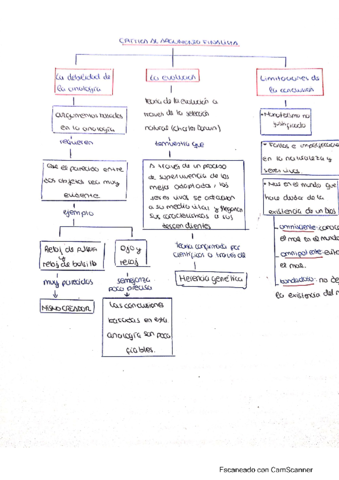 CRÍTICA AL ARGUMENTO FINALISTA
La debilidad de
la analogía
La evolución
Limitaciones de
la conclusión
argumentos basados
en la analogía
requieren
que el parecido entre
dos objetos sea muy
evidente
ejemplo
Reloj de pulsera
y
reloj de bolsillo
muy parecidos
MISMO CREADOR
Ojo y
reloj
semejanza
poco precisa
Las conclusiones
basadas en esta
analogía son poco
fiables.
teoría de la evolución a
través de la selección
natural (Charles Darwin)
demuestra que
A través de un proceso
de supervivencia de los
mejor adaptados, los
seres vivos se adaptan
a su medio vital y
sus características a sus
descendientes
Teoría confirmada por
científicos a través de
Herencia genética
• Monoteísmo no
justificado
en la naturaleza y
seres vivos
• Mal en el mundo que
hace dudar de la
existencia de un Dios
omnisciente
el mal en el mundo
omnipotente
el mal.
bondadoso: no
la existencia del
Escaneado con CamScanner